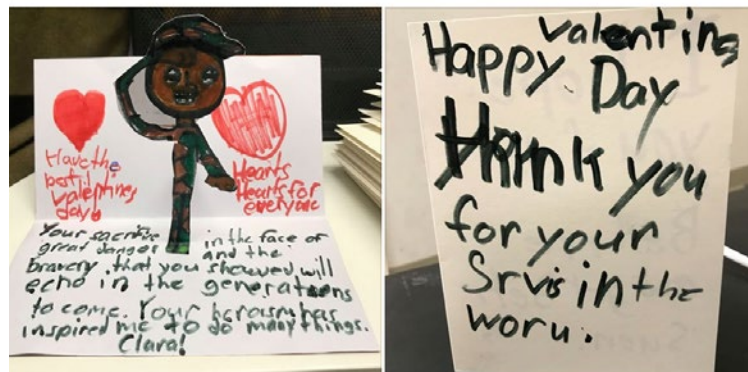 Have the
best
valentines
day!
Hearts
Hearts for
everyone
Your sacrifice in the face of
great danger and the
bravery that you showed will
echo in the generations
to come. Your heroism has
inspired me to do many things.
Clara!
valentins
Happy Day
thank you
for your
Srvis in the
woru.